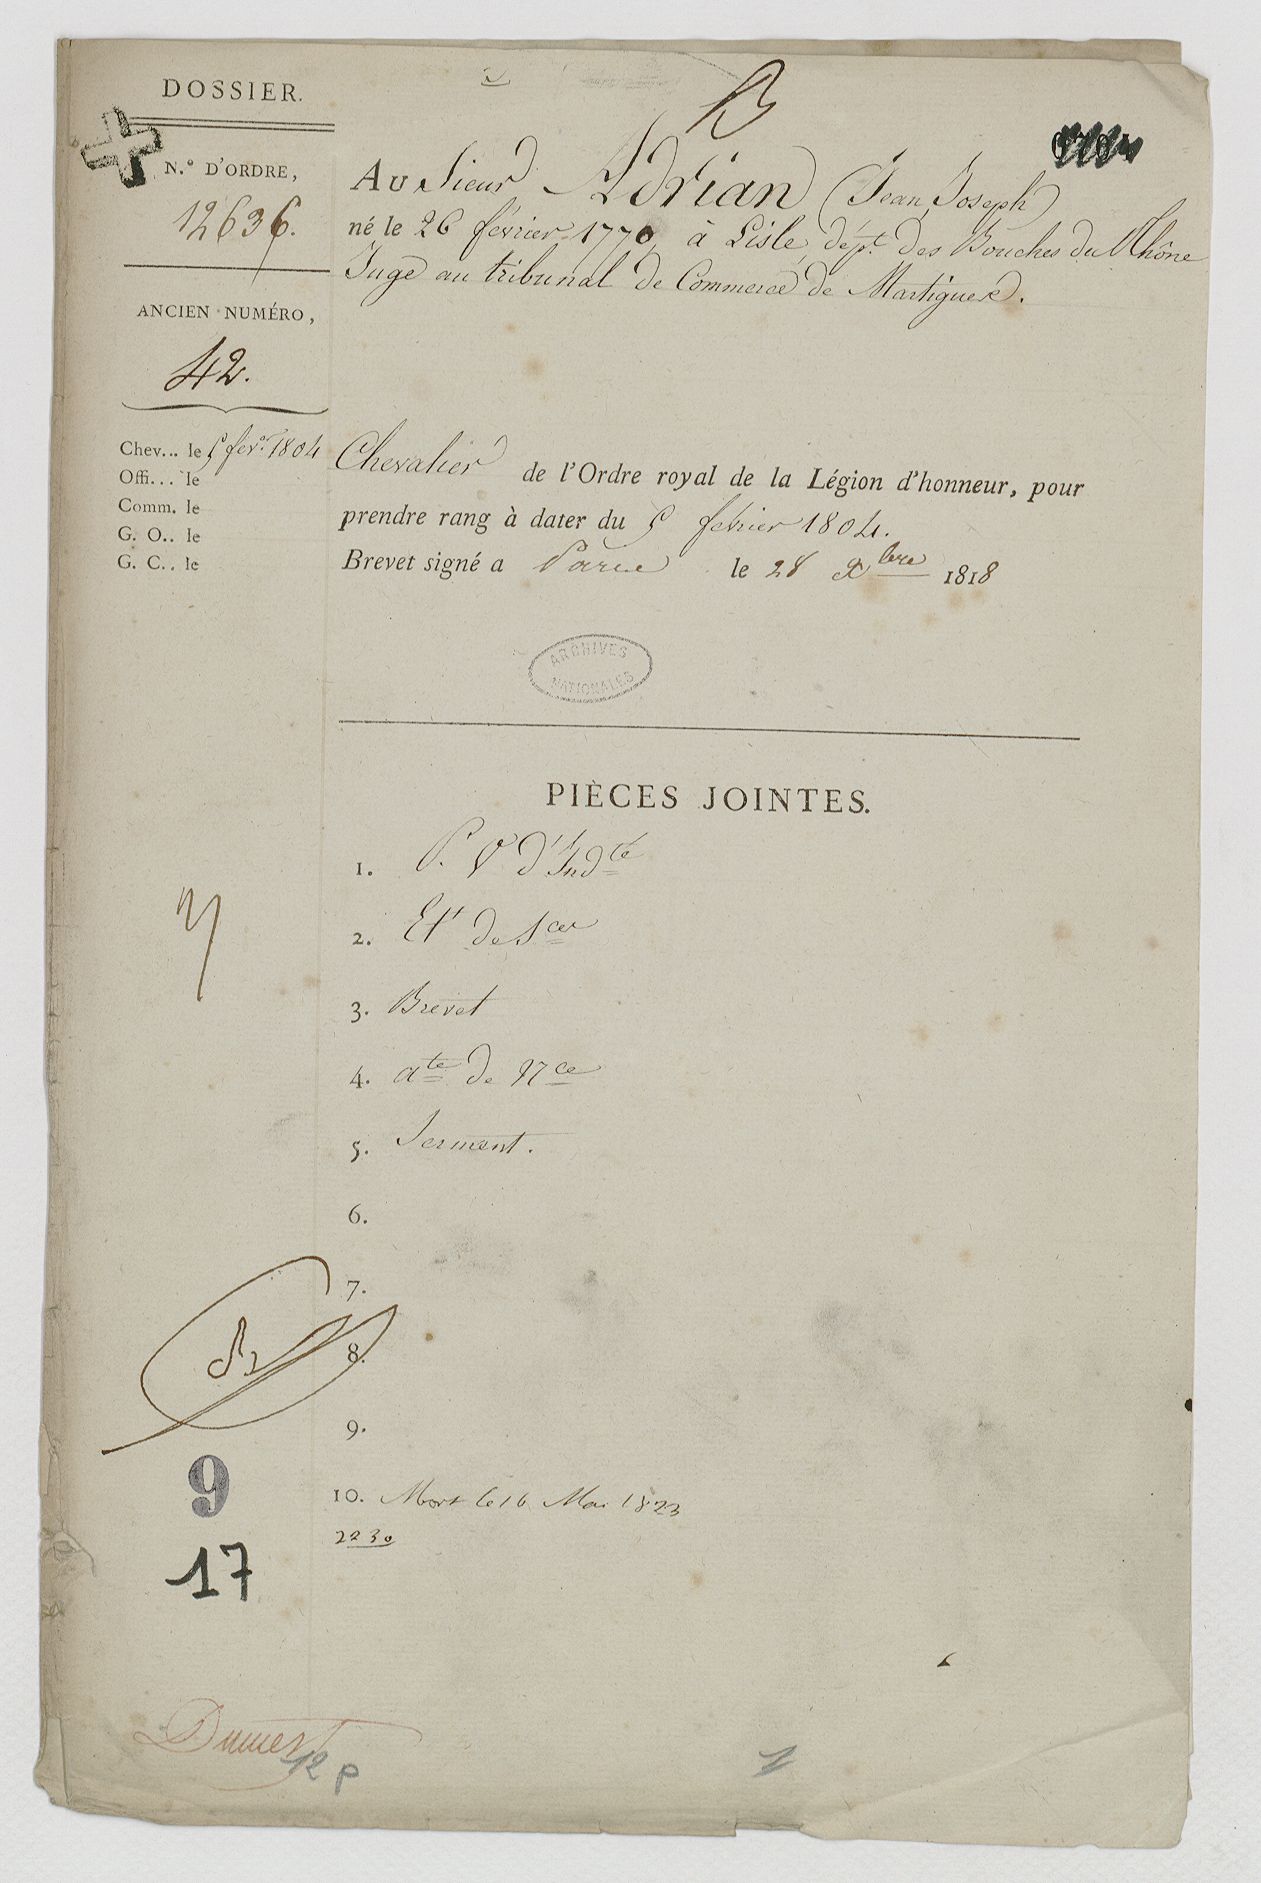 DOSSIER.
B
N.° D'ORDRE,
12636.
ANCIEN NUMÉRO,
42.
Chev... le 5 fev.er 1804
Offi... le
Comm. le
G. O.. le
G. C.. le
AU Sieur Adrian (Jean Joseph)
né le 26 février 1770, à Lisle, dép.t des Bouches du Rhône
Juge au tribunal de Commerce de Martigues.
Chevalier de l'Ordre royal de la Légion d'honneur, pour
prendre rang à dater du 5 février 1804.
Brevet signé a Paris le 28 Xbre 1818
ARCHIVES
NATIONALES
PIÈCES JOINTES.
1. P. Vl d'Indté
2. Et de Sces
3. Brevet
4. ate de Nce
5. Serment.
6.
7.
8.
9.
10. Mort le 16 Mai 1823
2230
9
17
12 P
1